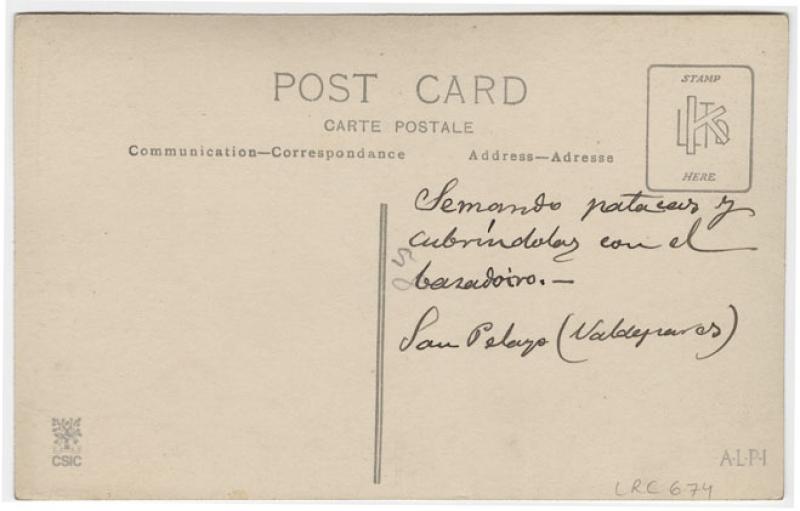 POST CARD
CARTE POSTALE
Communication—Correspondance
Address—Adresse
STAMP
KLTD
HERE
Semando patacas y
cubríndolas con el
bazadoiro.—
San Pelayo (Valdepares)
CSIC
A·L·P·I
LRC 674